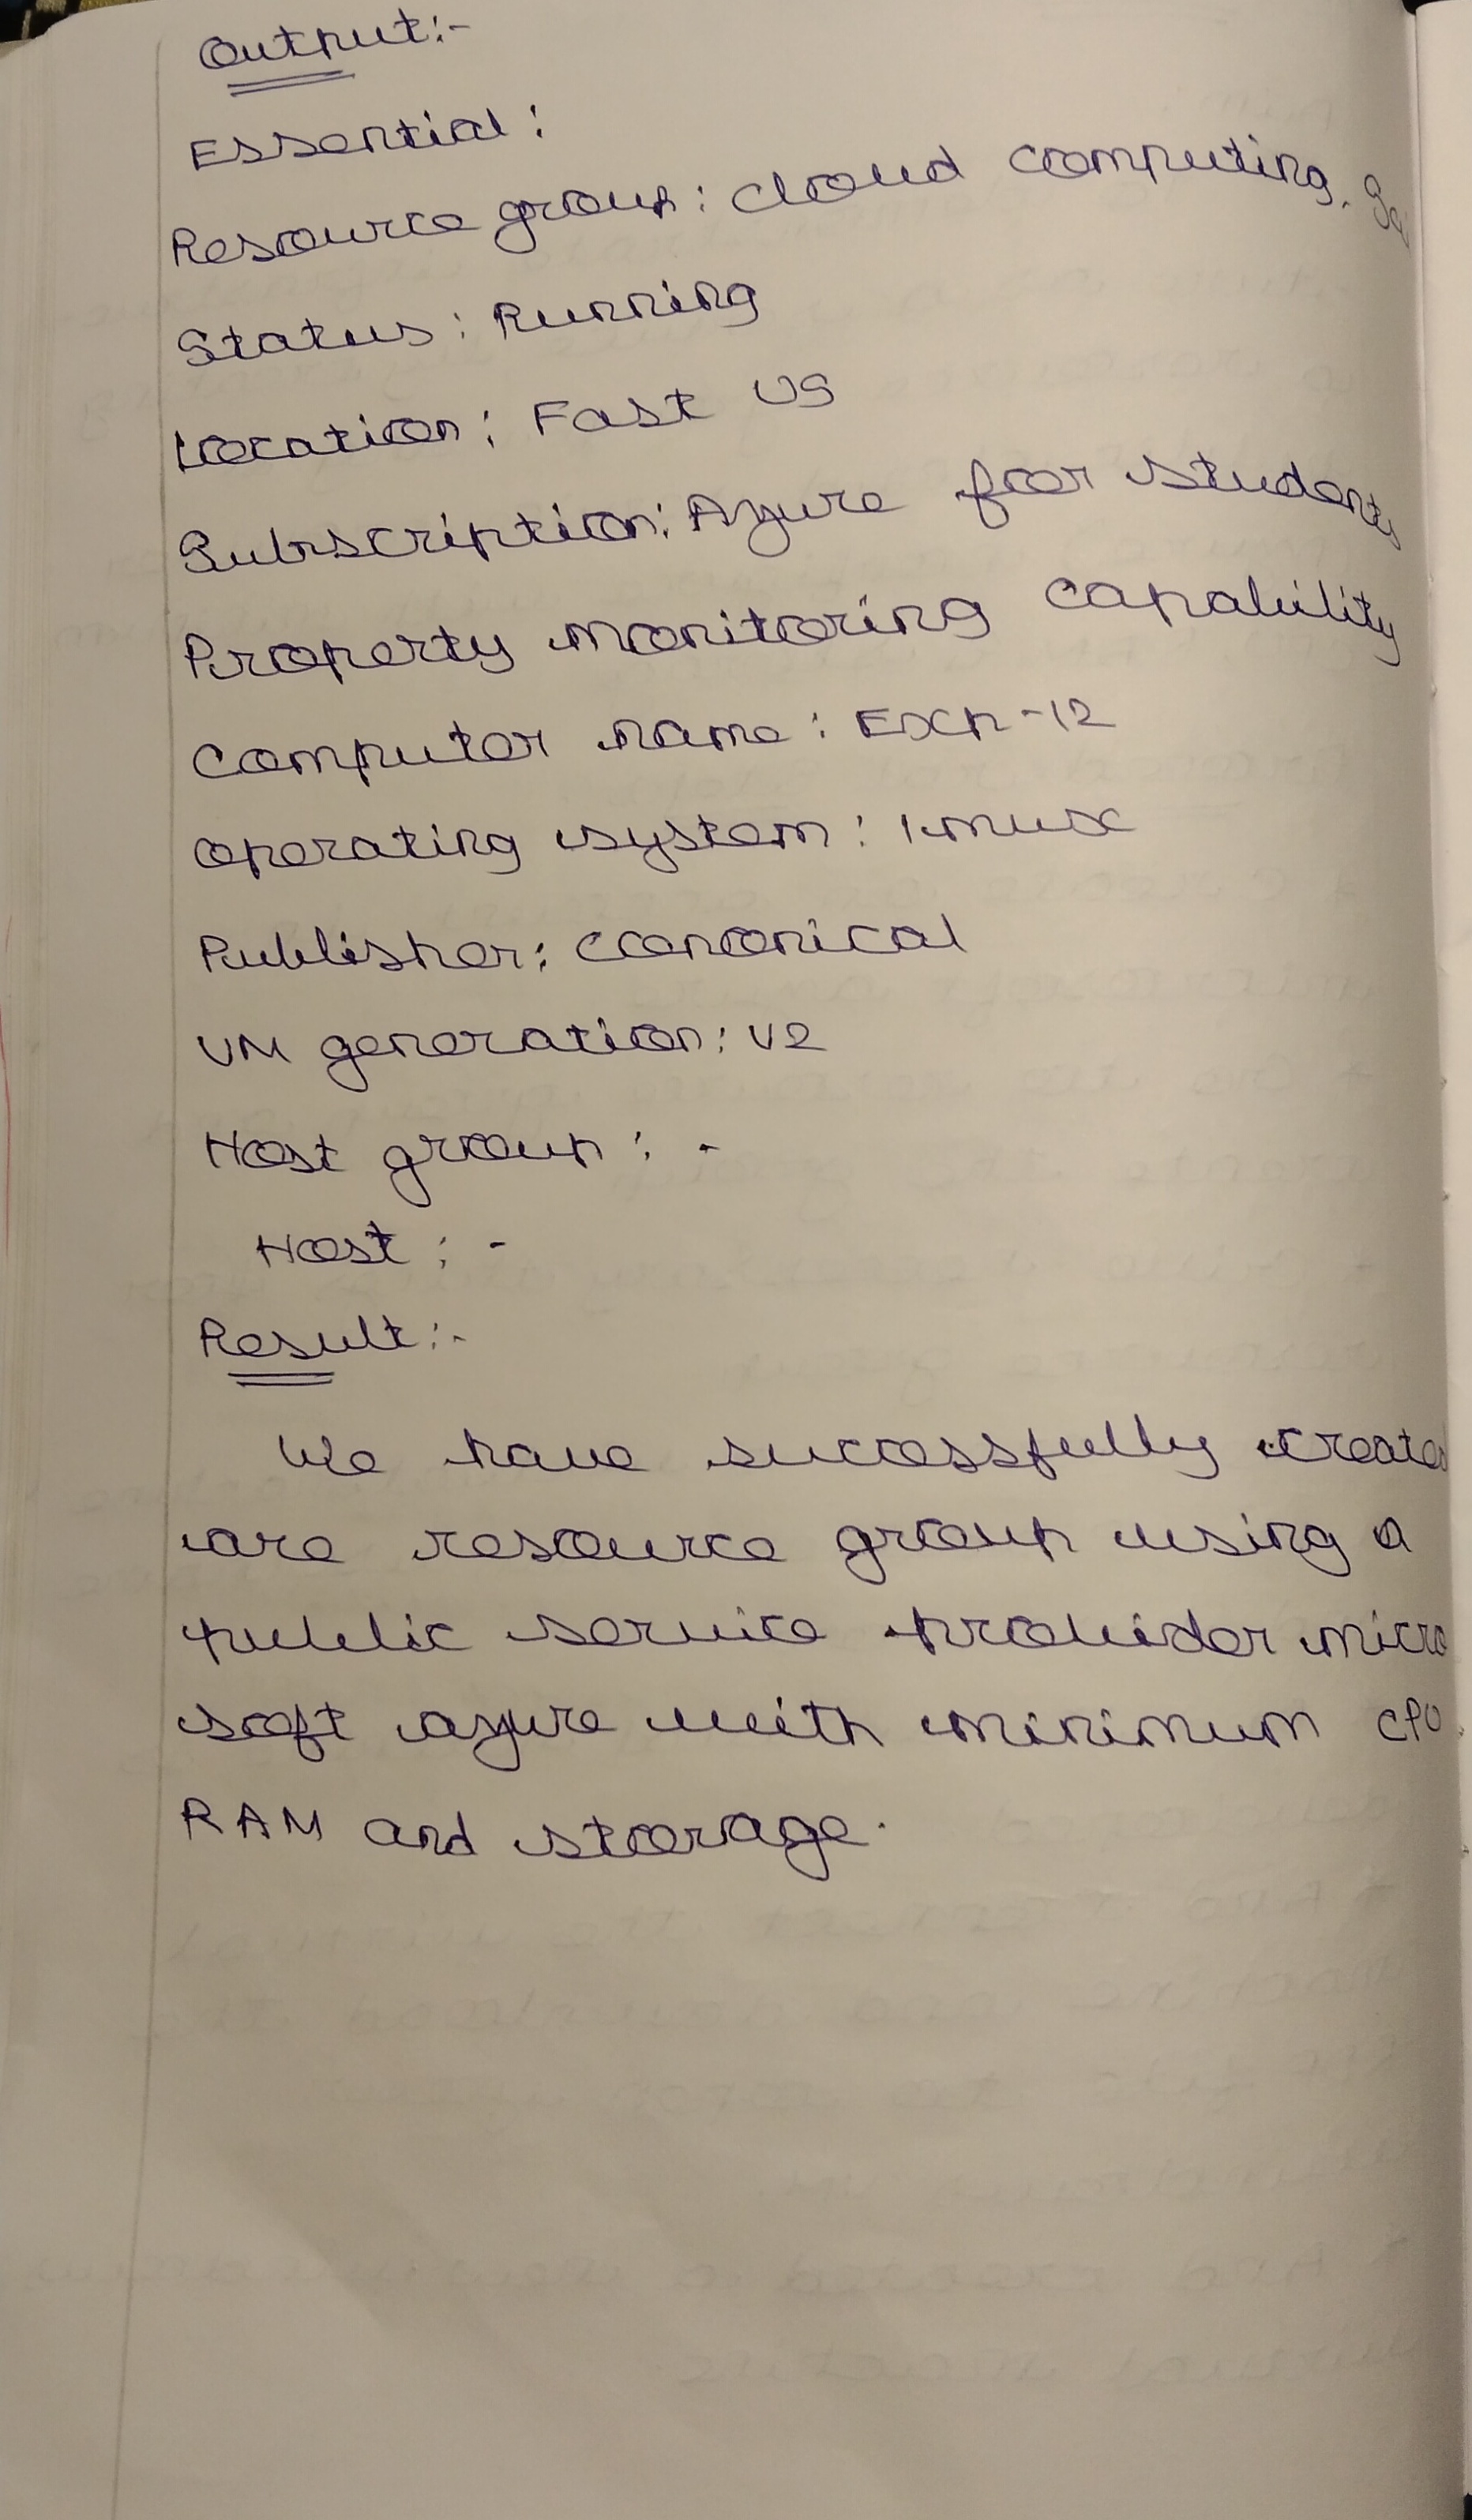 Output:-
Essential:
Resource group: cloud computing.
Status: Running
Location: East US
Subscription: Azure for students
Property monitoring capability
Computer name: Exp-12
operating system: linux
Publisher: canonical
VM generation: V2
Host group: -
Host: -
Result:-
We have successfully created
are resource group using a
public service provider micro
soft azure with minimum CPU
RAM and storage.